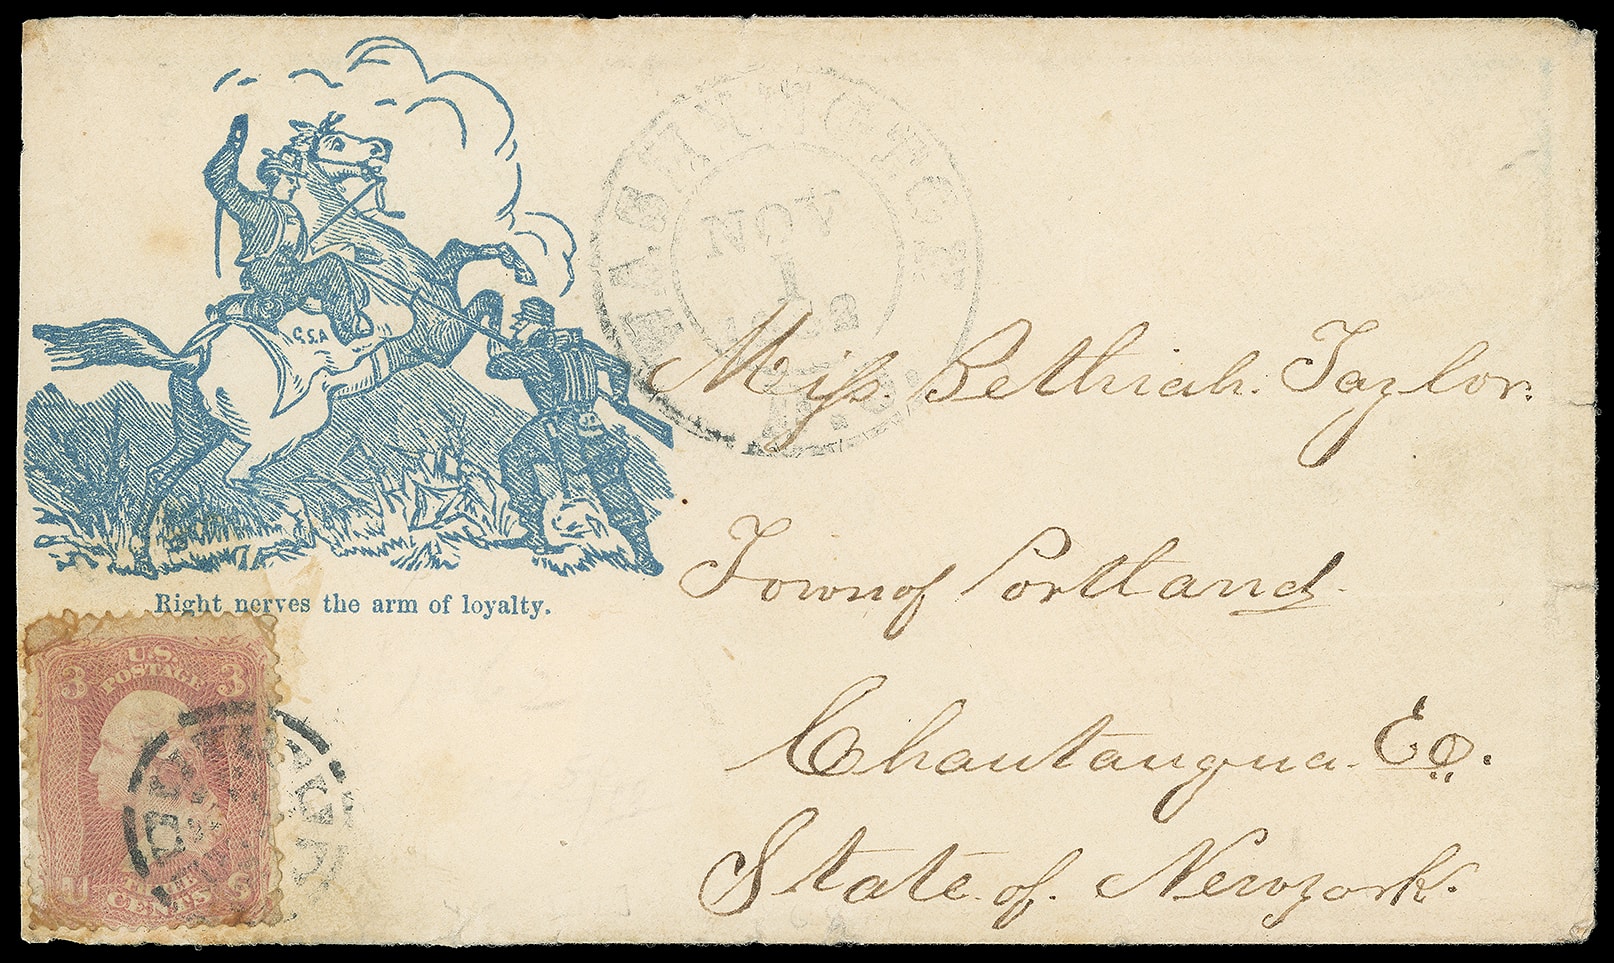 C.S.A
Right nerves the arm of loyalty.
WASHINGTON CITY
NOV
1
1862
D.C.
U.S.
POSTAGE
3 3
THREE
CENTS
U S
Miss. Bethiah. Taylor.
Town of Portland.
Chautauqua. Co.
State. of. Newyork.